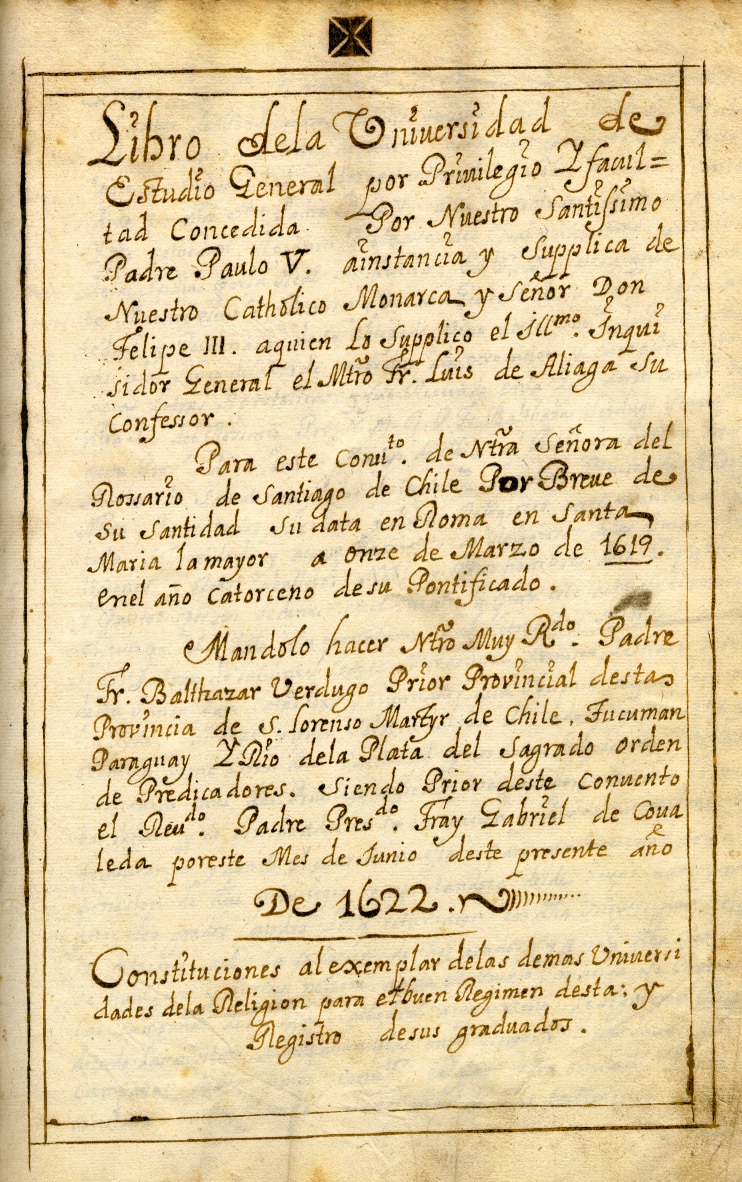 Libro dela Vniuersidad de
Estudio General por Priuilegio Y facul=
tad Concedida Por Nuestro Santissimo
Padre Paulo V. ainstancia y Supplica de
Nuestro Catholico Monarca y Señor Don
Felipe III. aquien Lo Supplico el Illmo. Inqui
sidor General el Mtro Fr. Luis de Aliaga Su
Confessor.
Para este Conuto. de Ntra Señora del
Rossario de Santiago de Chile Por Breue de
Su Santidad Su data en Roma en Santa
Maria la mayor a Onze de Marzo de 1619.
enel año Catorceno desu Pontificado.
Mandolo hacer Ntro Muy Rdo. Padre
Fr. Balthazar Verdugo Prior Prouincial desta
Prouincia de S. Lorenso Martyr de Chile, Tucuman
Paraguay Y Rio dela Plata del Sagrado Orden
de Predicadores. Siendo Prior deste Conuento
el Reudo. Padre Presdo. Fray Gabriel de Coua
leda poreste Mes de Junio deste presente año
De 1622.
Constituciones al exemplar delas demas Uniuersi
dades dela Religion para el buen Regimen desta; y
Registro desus graduados.